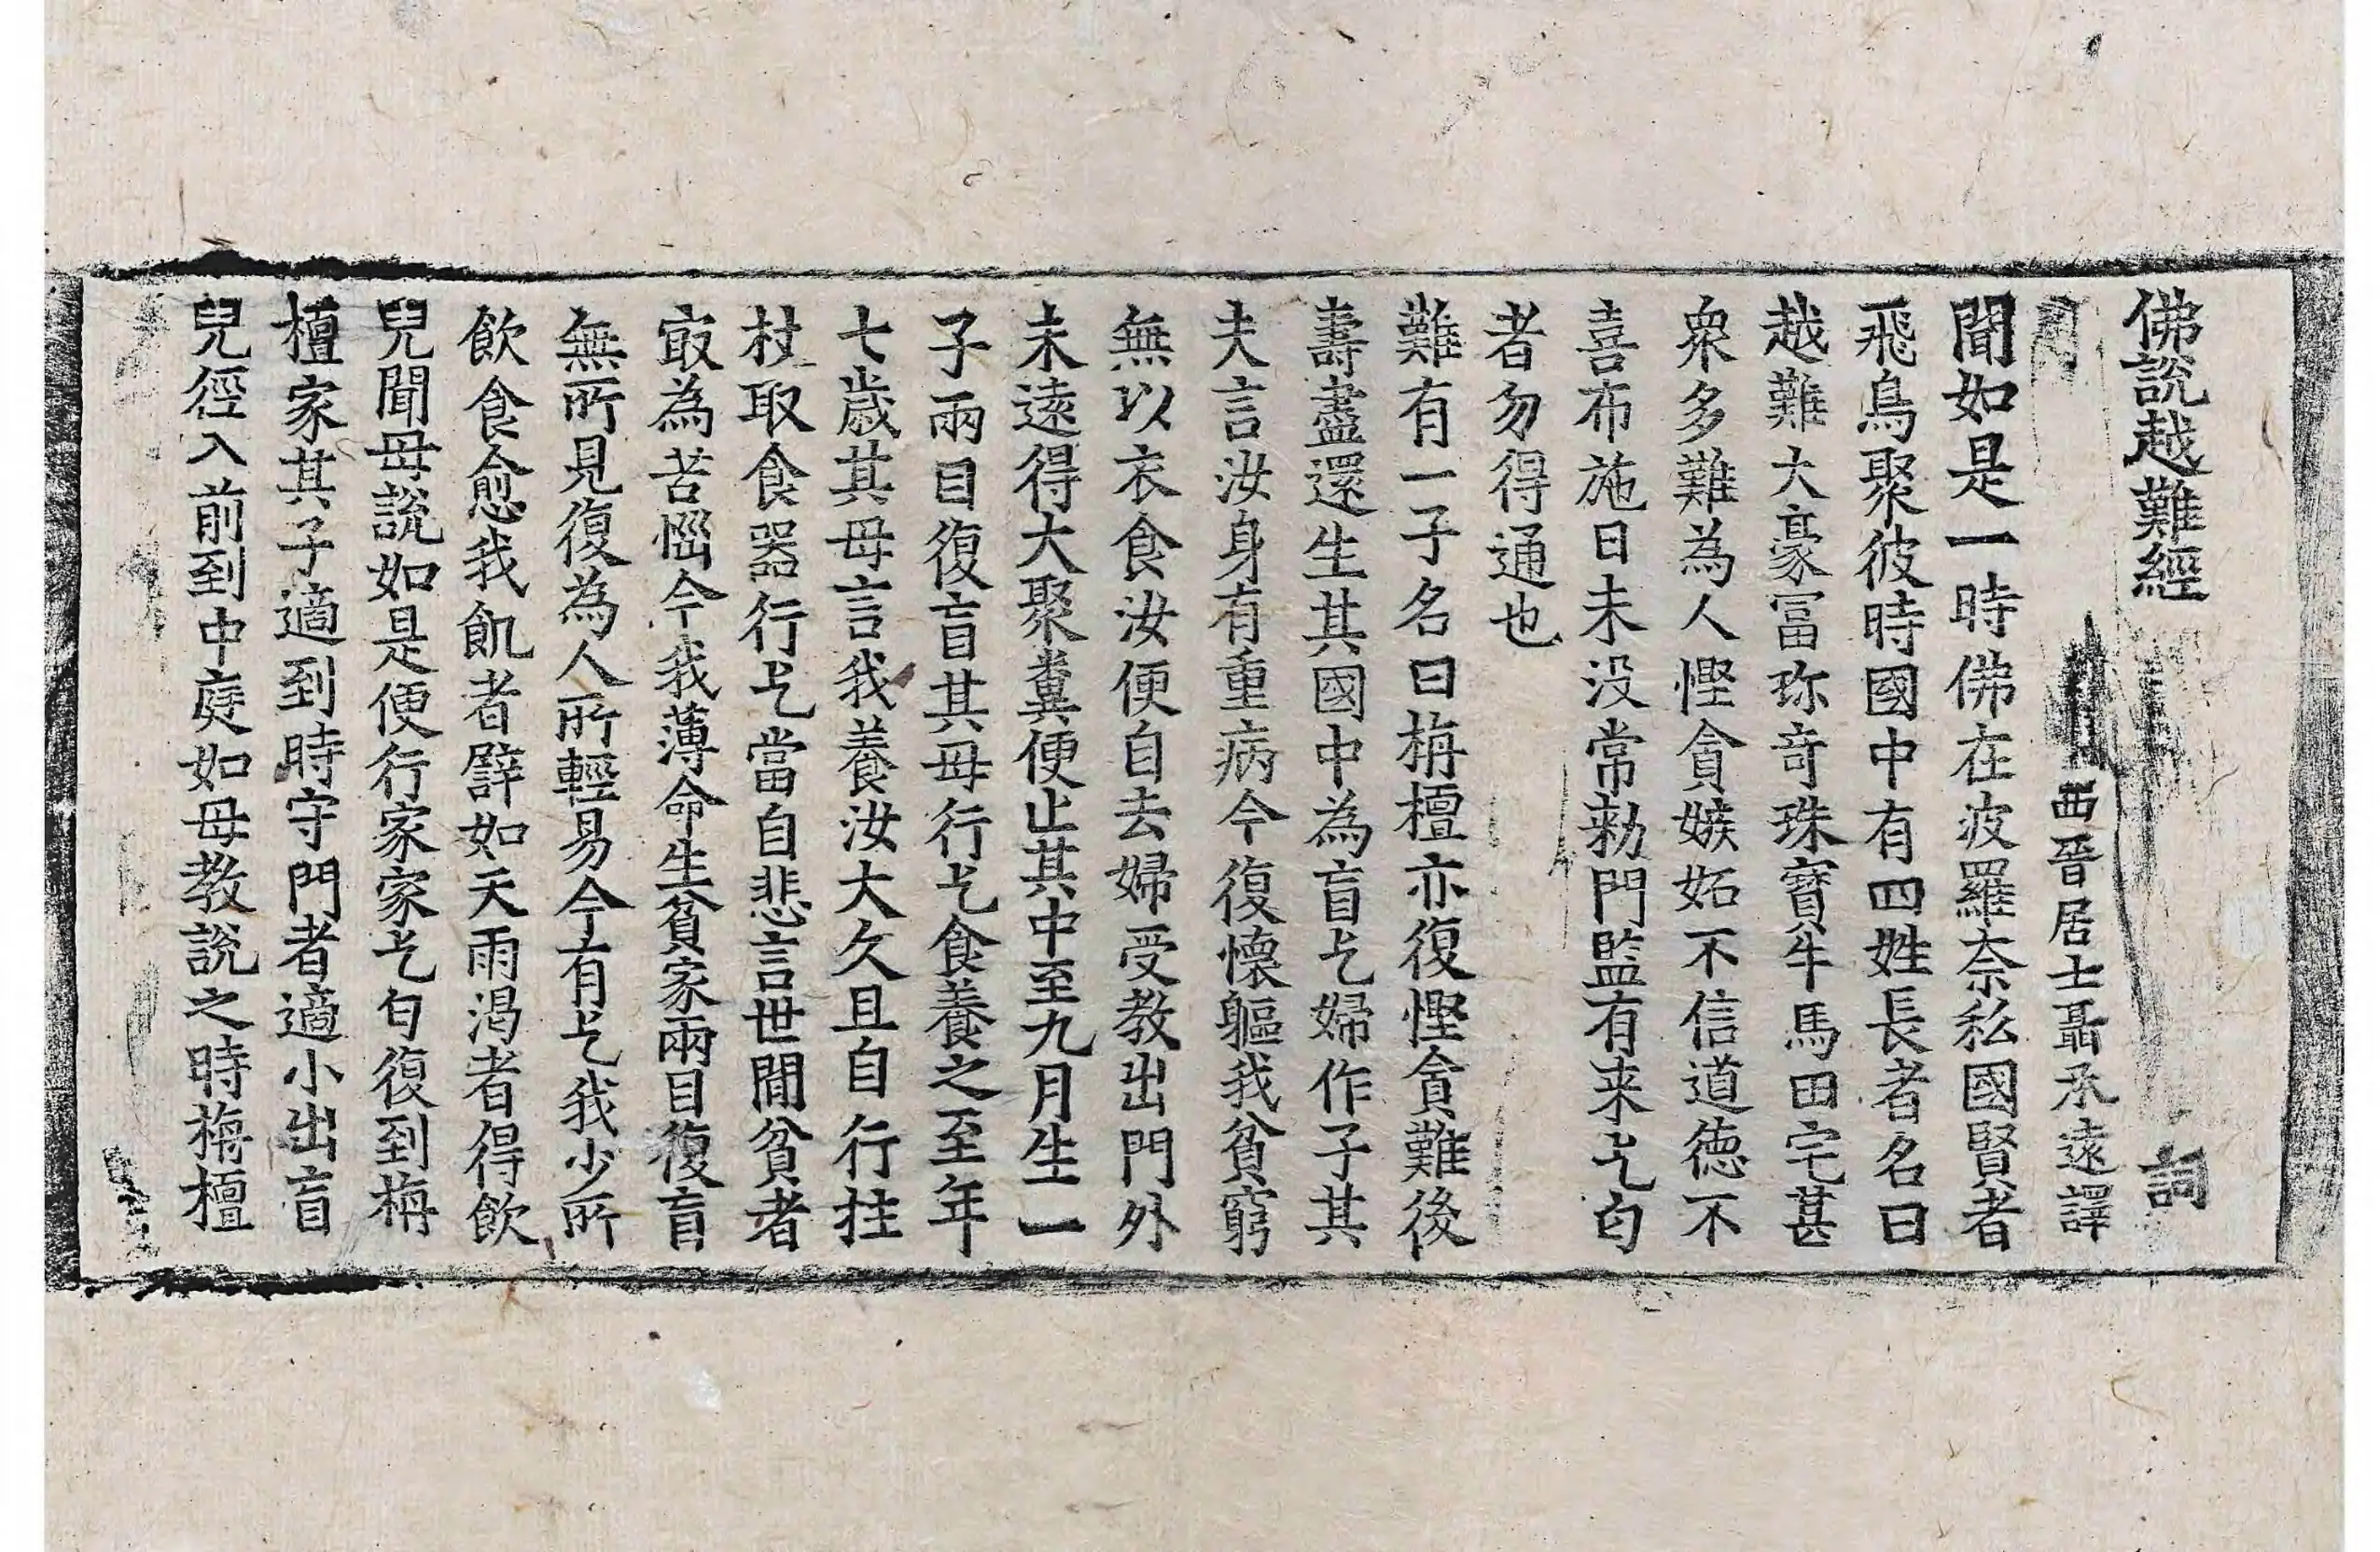 佛說越難經 詞
西晉居士聶承遠譯
聞如是一時佛在波羅奈私國賢者
飛鳥聚彼時國中有四姓長者名曰
越難大豪冨珎竒珠寶牛馬田宅甚
衆多難為人慳貪嫉妬不信道德不
喜布施日未没常勑門監有来乞匃
者勿得通也
難有一子名曰栴檀亦復慳貪難後
壽盡還生其國中為盲乞婦作子其
夫言汝身有重病今復懷軀我貧窮
無以衣食汝便自去婦受教出門外
未遠得大聚糞便止其中至九月生一
子兩目復盲其母行乞食養之至年
七歲其母言我養汝大久且自行拄
杖取食器行乞當自悲言世間貧者
冣為苦惱今我薄命生貧家兩目復盲
無所見復為人所輕易今有乞我少所
飲食愈我飢者譬如天雨渴者得飲
兒聞母說如是便行家家乞匃復到栴
檀家其子適到時守門者適小出盲
兒徑入前到中庭如母教說之時栴檀